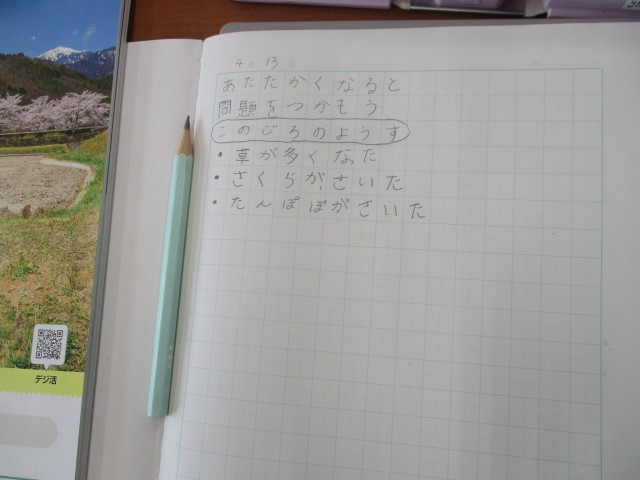 4月13日
あたたかくなると
問題をつかもう
このごろのようす
・草が多くなった
・さくらが、さいた
・たんぽぽがさいた
デジ活